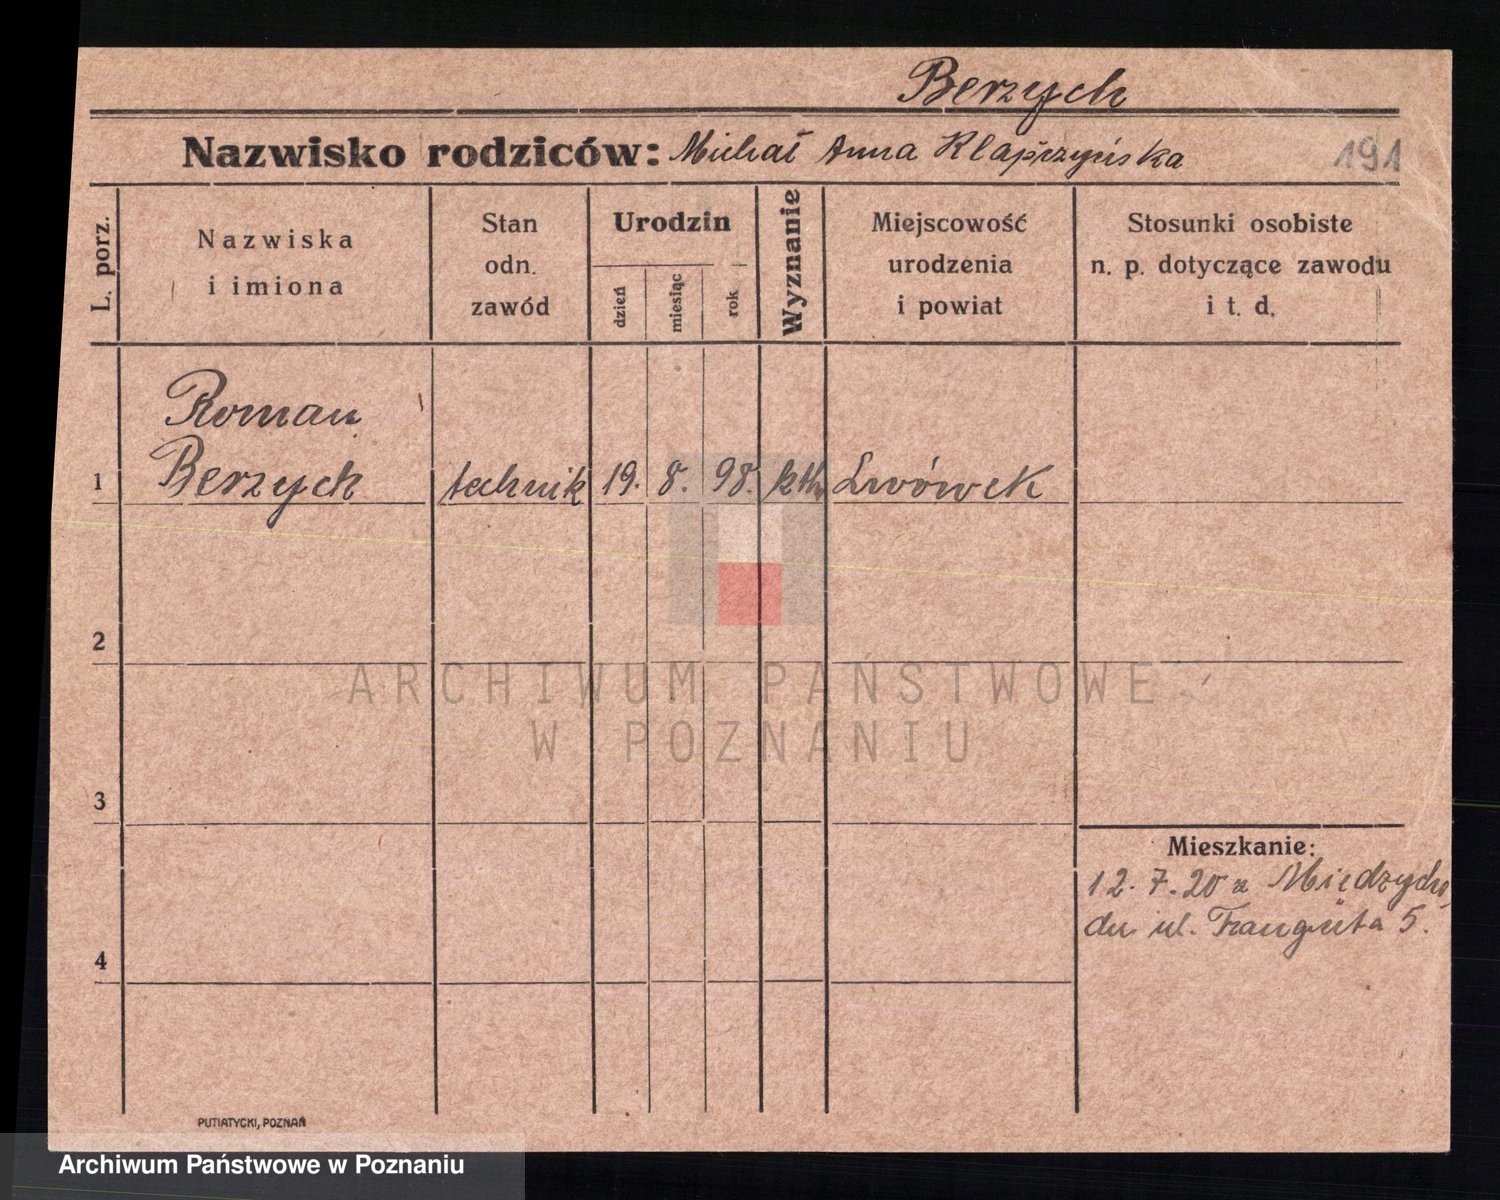 Berzych
Nazwisko rodziców: Michał Anna Klapszyńska 191
L. porz.
Nazwiska
i imiona
Stan
odn.
zawód
Urodzin
dzień
miesiąc
rok
Wyznanie
Miejscowość
urodzenia
i powiat
Stosunki osobiste
n. p. dotyczące zawodu
i t. d.
Roman
1 Berzych technik 19. 8. 98. kth. Lwówek
2
ARCHIWUM PAŃSTWOWE
W POZNANIU
3
Mieszkanie:
12.7.20 z Międzycho
du ul. Traugúta 5.
4
PUTIATYCKI, POZNAŃ
Archiwum Państwowe w Poznaniu